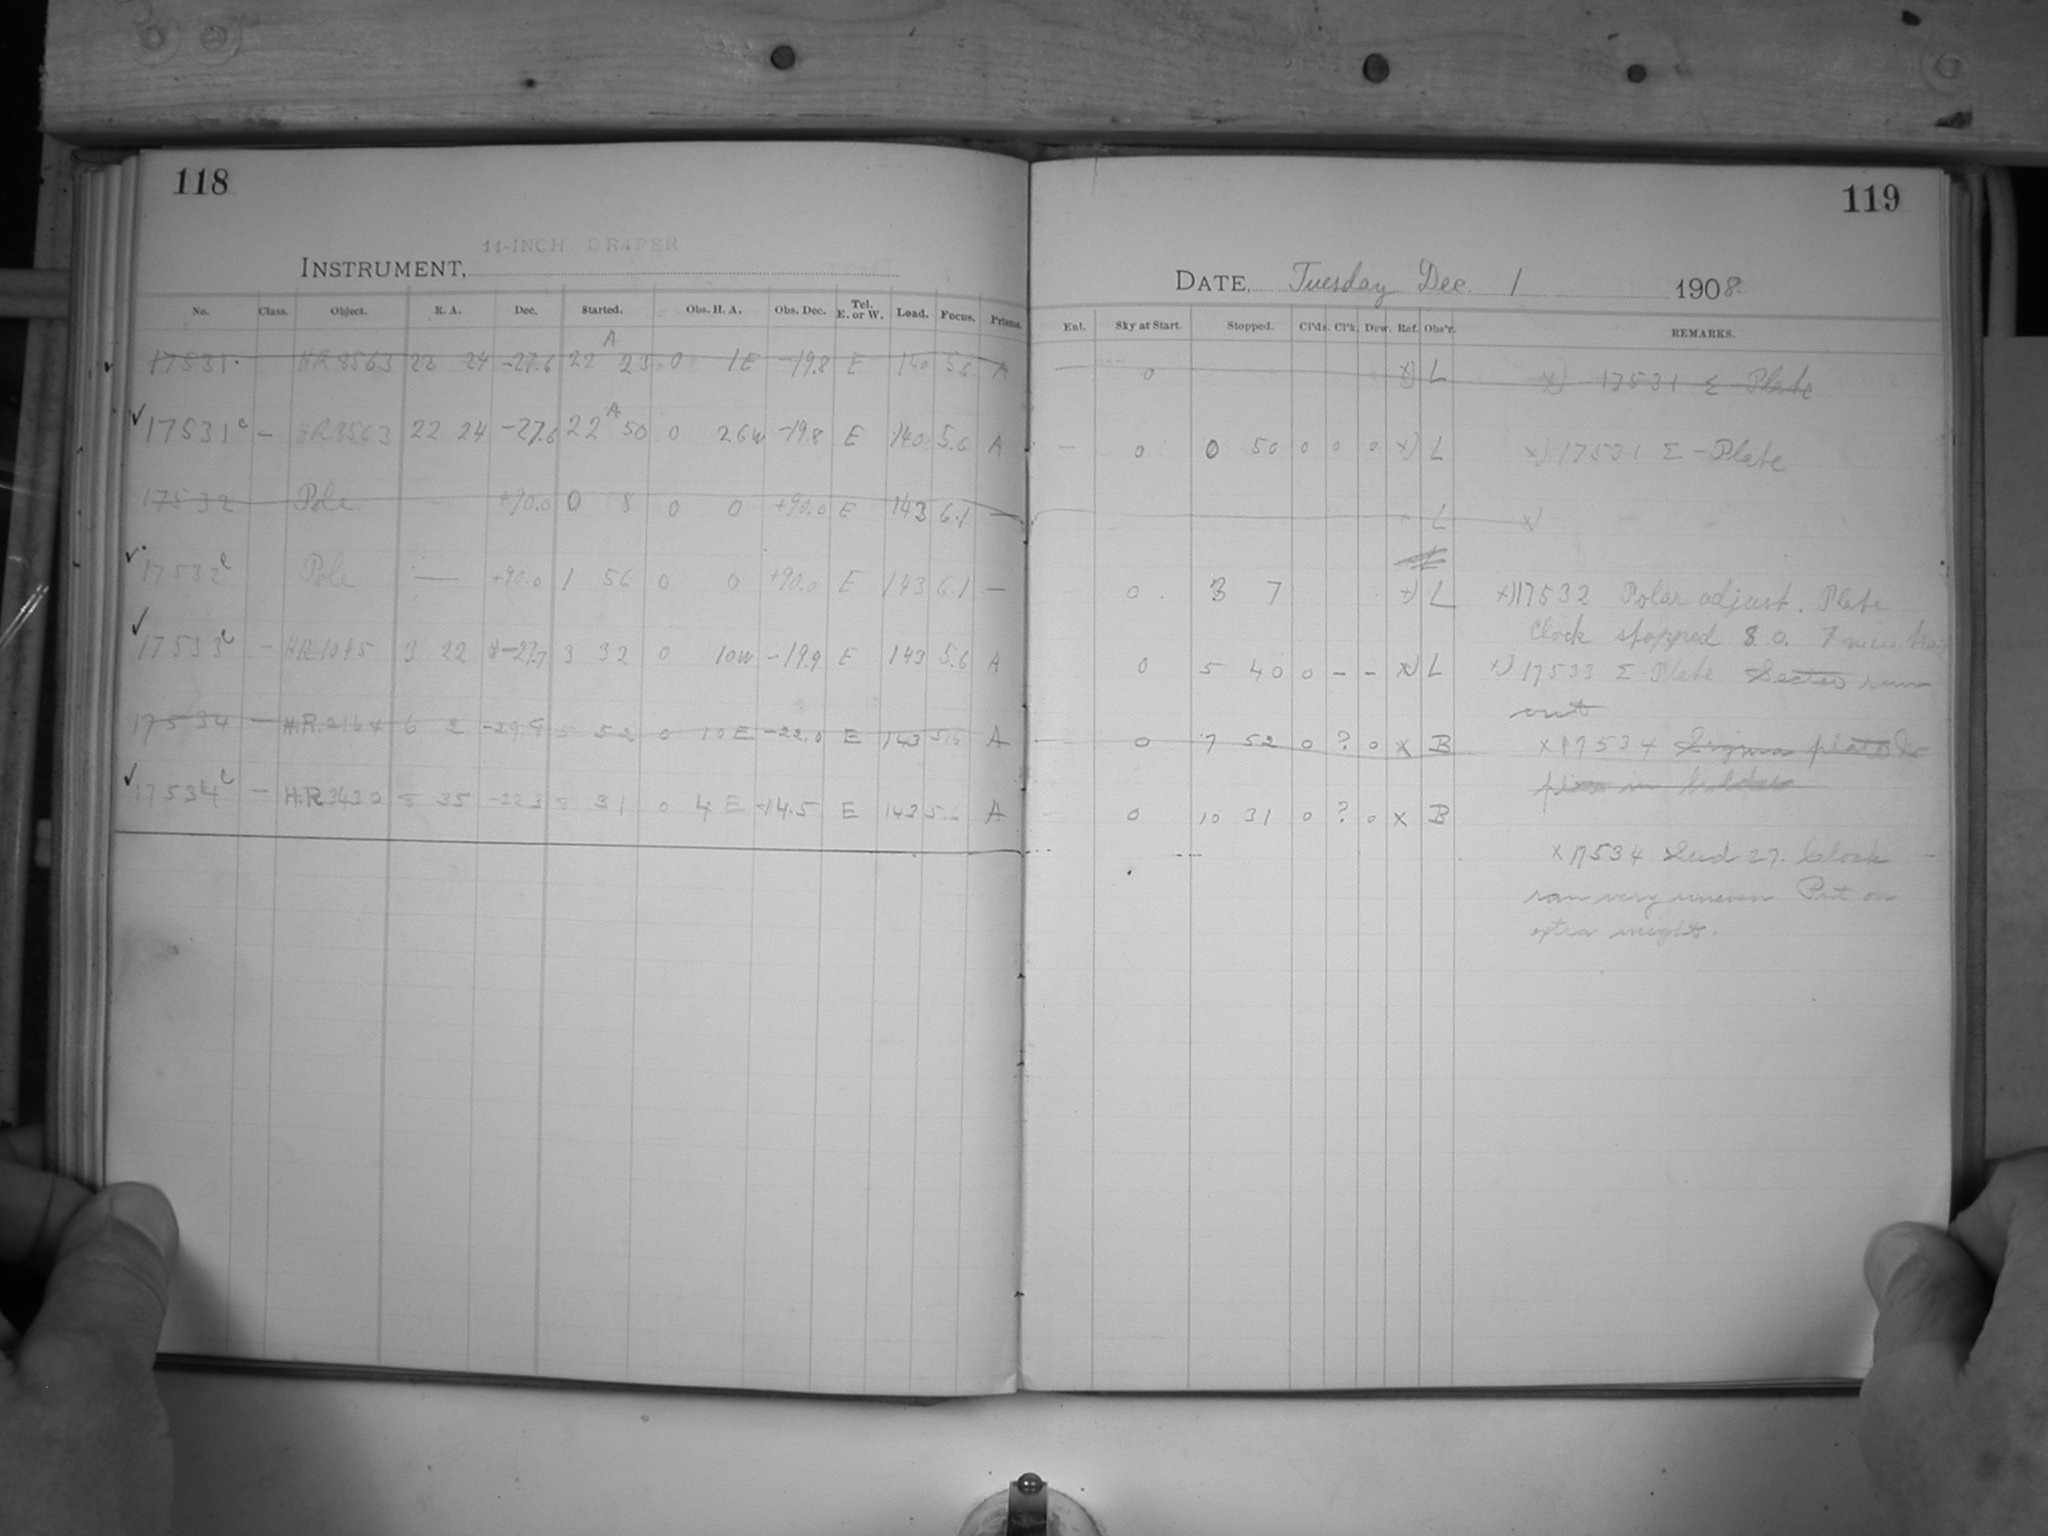 118
11-INCH DRAPER
INSTRUMENT,
No. Class. Object. R. A. Dec. Started. Obs. H. A. Obs. Dec. Tel. E. or W. Load. Focus. Prisms.
17531. HR 8563 22 24 -27.6 22 A 23 0 1E -19.8 E 140 5.6 A
✓ 17531c – HR 8563 22 24 -27.6 22 A 50 0 26w -19.8 E 140 5.6 A
17532 Pole +90.0 0 8 0 0 +90.0 E 143 6.1 —
✓ 17532c Pole — +90.0 1 56 0 0 +90.0 E 143 6.1 —
✓ 17533c – 3 22 -27.7 3 32 0 10w -19.9 E 143 5.6 A
17534 – H.R. 2164 6 2 52 0 10 E -22.0 E 143 5.6 A
✓ 17534c – H.R. 3430 35 31 0 4 E -14.5 E 143 5.6 A
119
DATE, Tuesday Dec. 1 1908.
Ent. Sky at Start. Stopped. Cl'ds. Cl'k. Dew. Ref. Obs'r. REMARKS.
— 0 x) L x) 17531 Σ Plate
— 0 0 50 0 0 0 x) L x) 17531 Σ - Plate
L x)
0 3 7 x) L x) 17532 Polar adjust. Plate
Clock stopped 8.0. 7 min
0 5 40 0 – – x) L x) 17533 Σ Plate
out
0 7 52 0 ? 0 x B x 17534 Sigma plate
in holder
0 10 31 0 ? 0 x B
x 17534 27. Clock
ran very uneven Put on
extra weights.